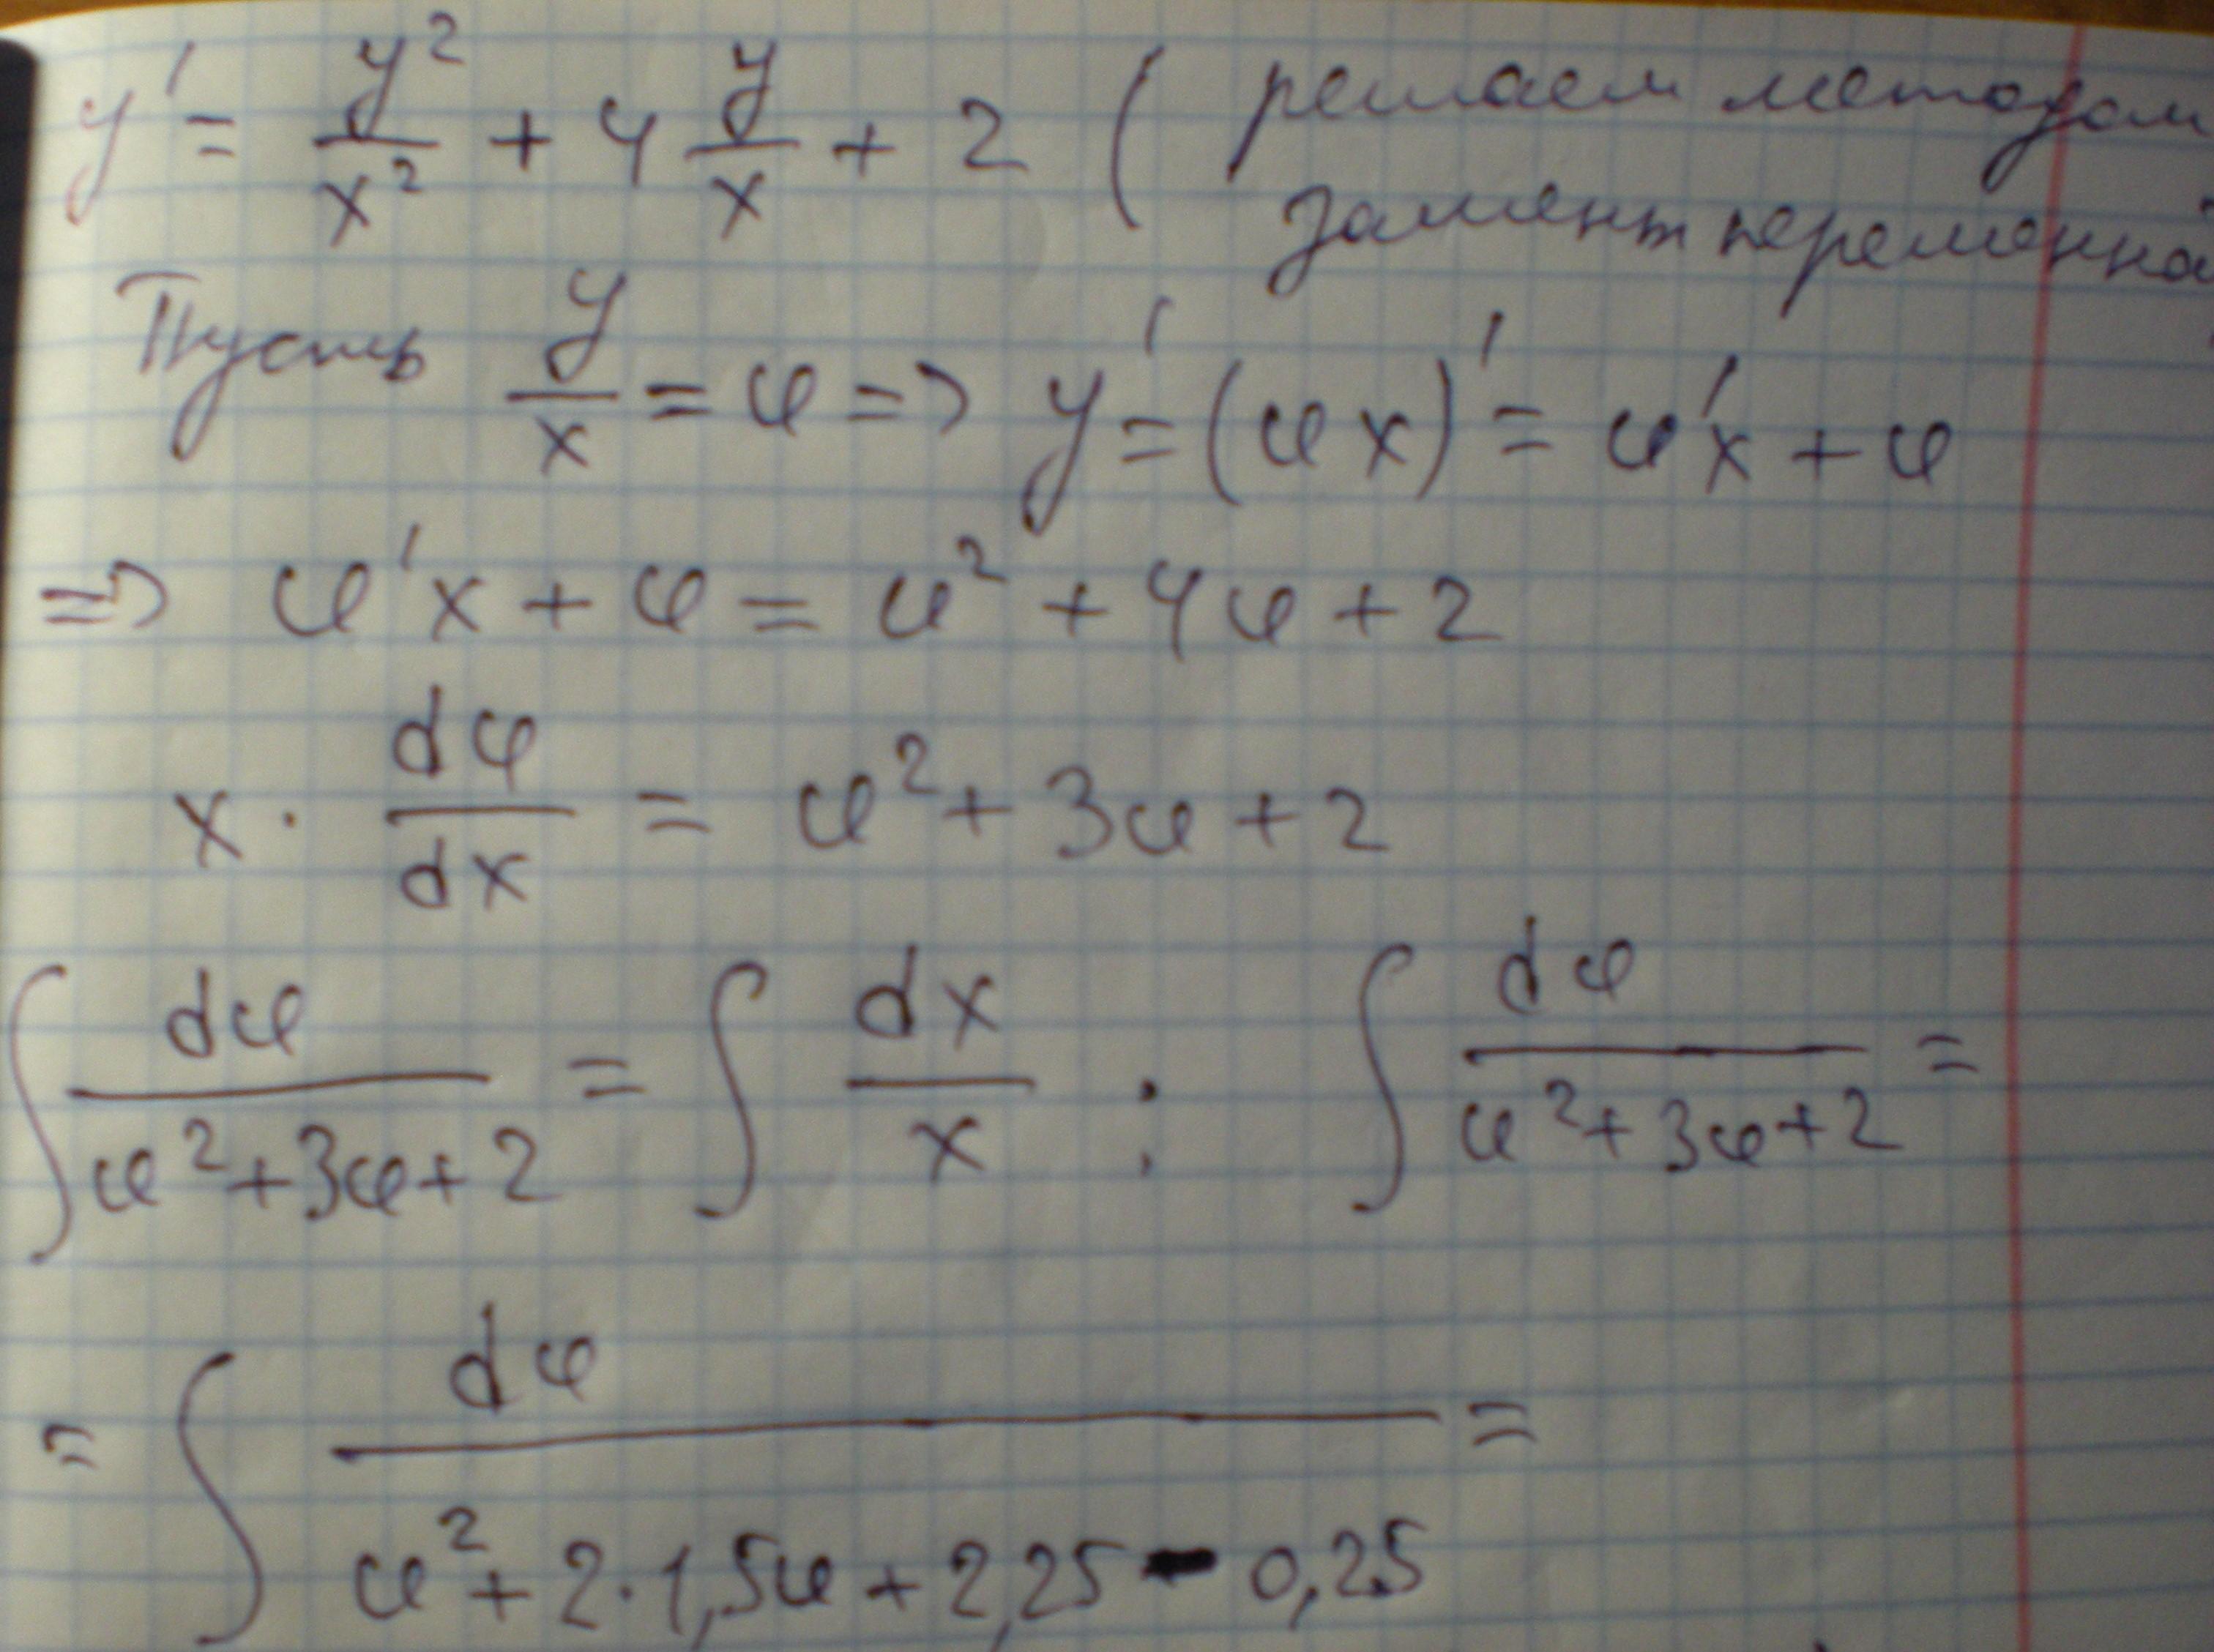 y' = y²/x² + 4 y/x + 2 ( решаем методом
замены переменной
Пусть y/x = u => y' = (ux)' = u'x + u
=> u'x + u = u² + 4u + 2
x · du/dx = u² + 3u + 2
∫ du/(u² + 3u + 2) = ∫ dx/x ; ∫ du/(u² + 3u + 2) =
= ∫ du/(u² + 2·1,5u + 2,25 - 0,25) =